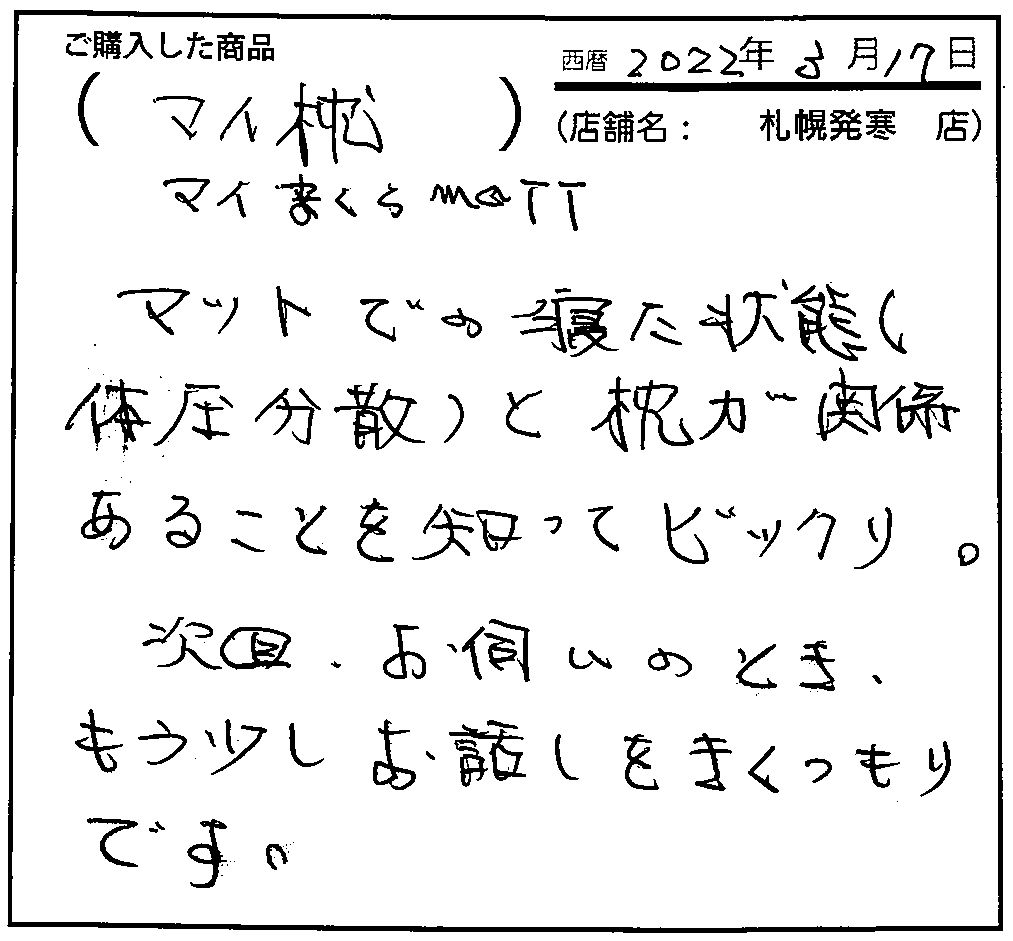 ご購入した商品
西暦 2022年 3月17日
(マイ枕)
(店舗名: 札幌発寒 店)
マイまくらmaTT
マットでの寝た状態(
体圧分散)と枕が関係
あることを知ってビックリ。
次回、お伺いのとき、
もう少しお話しをきくつもり
です。